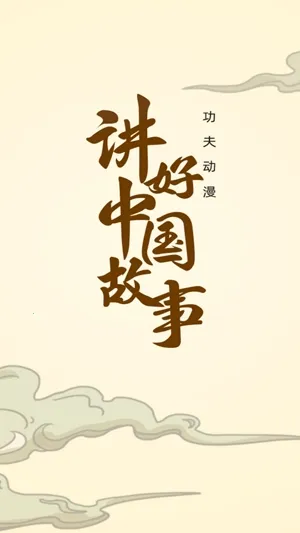 功夫动漫
讲好
中国
故事